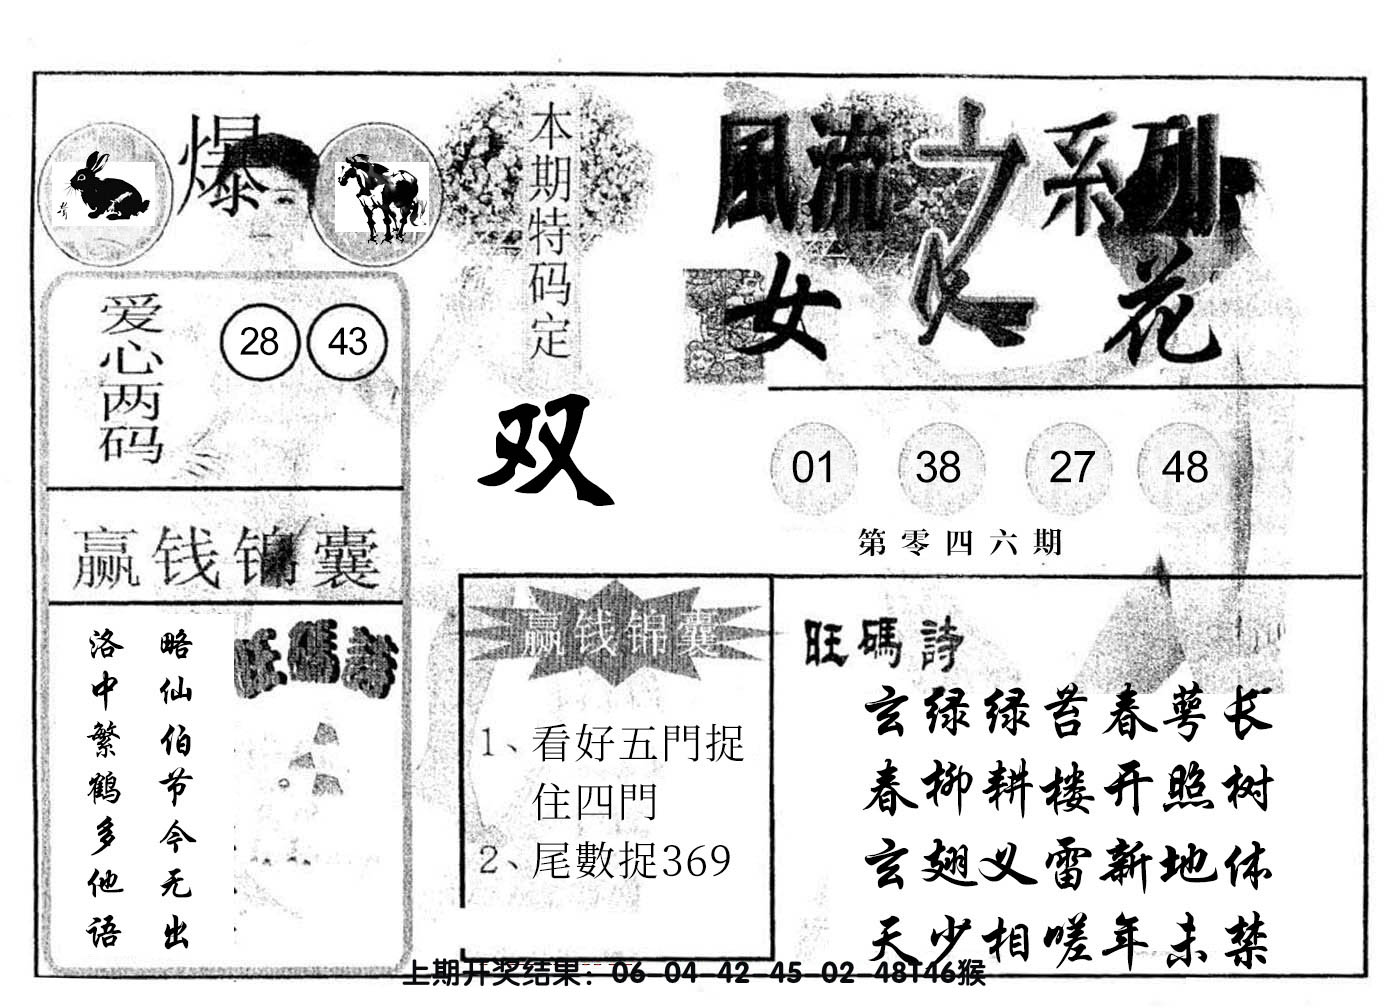 爆
本期特码定
双
風流之系列
女人花
爱心两码
28 43
01 38 27 48
第零四六期
赢钱锦囊
略仙伯节今无出
洛中繁鹤多他语
旺碼詩
赢钱锦囊
1、看好五門捉
住四門
2、尾數捉369
旺碼詩
玄绿绿苔春萼长
春柳耕楼开照树
玄翅义雷新地体
天少相嗟年未禁
上期开奖结果：06-04-42-45-02-48T46猴